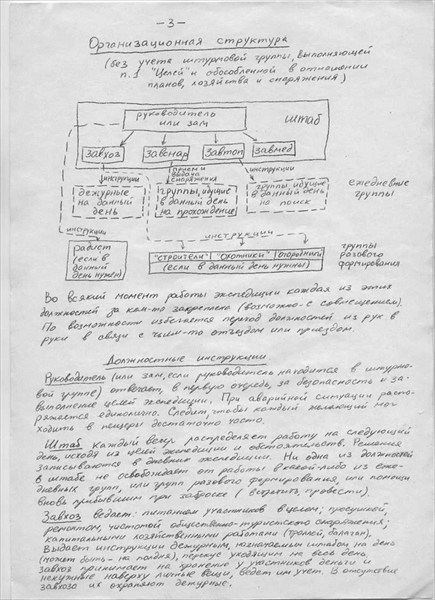 — 3 —
Организационная структура
(без учета штурмовой группы, выполняющей
п.1 "Целей" и обособленной в отношении
планов, хозяйства и снаряжения)
руководитель
или зам
штаб
завхоз
завснар
завтоп
завмед
инструкции
прием и
выдача
снаряжения
инструкции
дежурные
на данный
день
группы, идущие
в данный день
на прохождение
группы, идущие
в данный день
на поиск
ежедневные
группы
инструкции
инструкции
радист
(если в
данный
день нужен)
"строители"
"охотники"
"огородники"
(если в данный день нужны)
группы
разового
формирования
Во всякий момент работы экспедиции каждая из этих
должностей за кем-то закреплена (возможно - с совмещением).
По возможности избегается переход должностей из рук в
руки в связи с чьим-то отъездом или приездом.
Должностные инструкции
Руководитель (или зам, если руководитель находится в штурмо-
вой группе) отвечает, в первую очередь, за безопасность и за
выполнение целей экспедиции. При аварийной ситуации распо-
ряжается единолично. Следит, чтобы каждый желающий мог
ходить в пещеры достаточно часто.
Штаб каждый вечер распределяет работу на следующий
день, исходя из целей экспедиции и обстоятельств. Решения
записываются в дневник экспедиции. Ни одна из должностей
в штабе не освобождает от работы в какой-либо из еже-
дневных групп, или групп разового формирования, или помощи
вновь прибывшим при заброске (встретить, провести).
Завхоз ведает: питанием участников в целом; просушкой,
ремонтом, чисткой общественно-туристского снаряжения;
капитальными хозяйственными работами
Выдает инструкции дежурным, назначаемым штабом на день
(может быть - на полдня), перекус уходящим на весь день.
завхоз принимает на хранение у участников деньги и
ненужные наверху личные вещи, ведет им учет. В отсутствие
завхоза их охраняют дежурные.